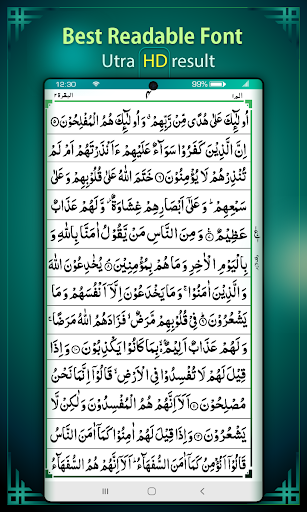 Best Readable Font
Utra HD result
12:30 99%
البقرة ٢ م الٓمّٓ ١
اُولٰٓئِكَ عَلٰى هُدًى مِّنْ رَّبِّهِمْ ۗ وَ اُولٰٓئِكَ هُمُ الْمُفْلِحُوْنَ ۝
اِنَّ الَّذِيْنَ كَفَرُوْا سَوَآءٌ عَلَيْهِمْ ءَاَنْذَرْتَهُمْ اَمْ لَمْ
تُنْذِرْهُمْ لَا يُؤْمِنُوْنَ ۝ خَتَمَ اللّٰهُ عَلٰى قُلُوْبِهِمْ وَعَلٰى
سَمْعِهِمْ ؕ وَعَلٰٓى اَبْصَارِهِمْ غِشَاوَةٌ ؗ وَّلَهُمْ عَذَابٌ
عَظِيْمٌ ۝ وَ مِنَ النَّاسِ مَنْ يَّقُوْلُ اٰمَنَّا بِاللّٰهِ وَ
بِالْيَوْمِ الْاٰخِرِ وَمَا هُمْ بِمُؤْمِنِيْنَ ۝ يُخٰدِعُوْنَ اللّٰهَ
وَالَّذِيْنَ اٰمَنُوْا ۚ وَمَا يَخْدَعُوْنَ اِلَّاۤ اَنْفُسَهُمْ وَمَا
يَشْعُرُوْنَ ۝ فِيْ قُلُوْبِهِمْ مَّرَضٌ ۙ فَزَادَهُمُ اللّٰهُ مَرَضًا ۚ
وَلَهُمْ عَذَابٌ اَلِيْمٌۢ ۙ بِمَا كَانُوْا يَكْذِبُوْنَ ۝ وَاِذَا
قِيْلَ لَهُمْ لَا تُفْسِدُوْا فِي الْاَرْضِ ۙ قَالُوْۤا اِنَّمَا نَحْنُ
مُصْلِحُوْنَ ۝ اَلَاۤ اِنَّهُمْ هُمُ الْمُفْسِدُوْنَ وَلٰكِنْ لَّا
يَشْعُرُوْنَ ۝ وَاِذَا قِيْلَ لَهُمْ اٰمِنُوْا كَمَاۤ اٰمَنَ النَّاسُ
قَالُوْۤا اَنُؤْمِنُ كَمَاۤ اٰمَنَ السُّفَهَآءُ ؕ اَلَاۤ اِنَّهُمْ هُمُ السُّفَهَآءُ